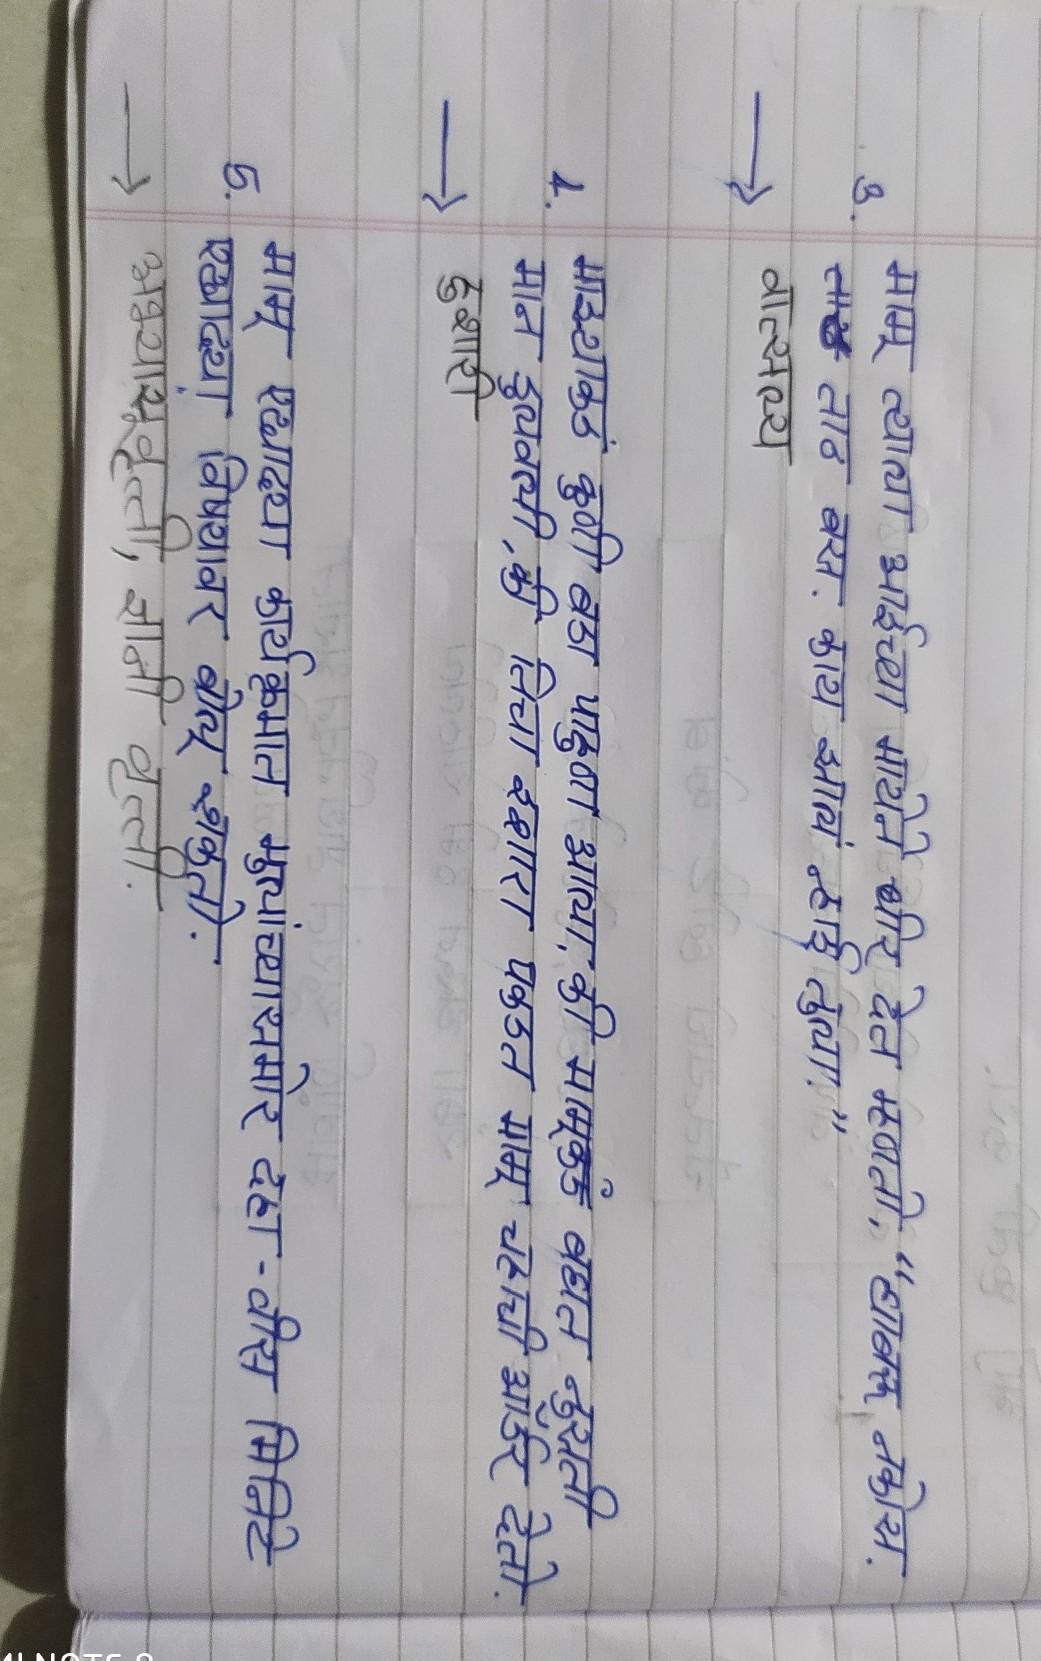 3. मामू त्याला आईच्या मायेने धीर देत म्हणतो, "घाबरू नकोस.
ताठ बस. काय आलं न्हाई तुला."
→ वात्सल्य
4. माझ्याकडं कुणी बडा पाहुणा आला, की मामूकडं बघत नुसती
मान डुलवली, की तिचा इशारा पकडत मामू चहाची ऑर्डर देतो.
→ हुशारी
5. मामू एखाद्या कार्यक्रमात मुलांच्यासमोर दहा-वीस मिनिटे
एखाद्या विषयावर बोलू शकतो.
→ अभ्यासूवृत्ती, ज्ञानी वृत्ती.